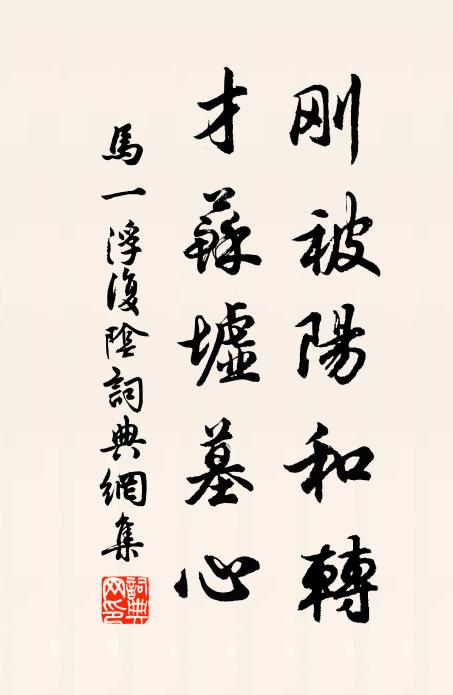 刚被陽和轉
才蘇墟墓心
馬一浮復陰詞典網集
詞典網印